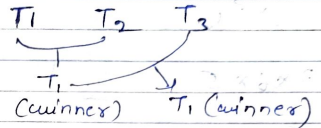 T1 T2 T3
T1
(winner) T1 (winner)